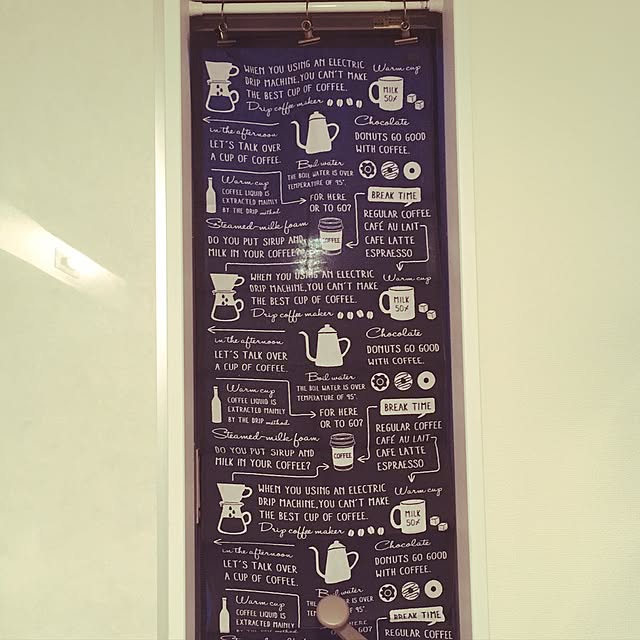 WHEN YOU USING AN ELECTRIC
DRIP MACHINE,YOU CAN'T MAKE
THE BEST CUP OF COFFEE.
Drip coffee maker
Warm cup
MILK
50%
in the afternoon
LET'S TALK OVER
A CUP OF COFFEE.
Chocolate
DONUTS GO GOOD
WITH COFFEE.
Boil water
THE BOIL WATER IS OVER
TEMPERATURE OF 95°.
Warm cup
COFFEE LIQUID IS
EXTRACTED MAINLY
BY THE DRIP method.
FOR HERE
OR TO GO?
BREAK TIME
REGULAR COFFEE
CAFÉ AU LAIT
CAFE LATTE
ESPRAESSO
Steamed-milk foam
DO YOU PUT SIRUP AND
MILK IN YOUR COFFEE?
COFFEE
WHEN YOU USING AN ELECTRIC
DRIP MACHINE,YOU CAN'T MAKE
THE BEST CUP OF COFFEE.
Drip coffee maker
Warm cup
MILK
50%
in the afternoon
LET'S TALK OVER
A CUP OF COFFEE.
Chocolate
DONUTS GO GOOD
WITH COFFEE.
Boil water
THE BOIL WATER IS OVER
TEMPERATURE OF 95°.
Warm cup
COFFEE LIQUID IS
EXTRACTED MAINLY
BY THE DRIP method.
FOR HERE
OR TO GO?
BREAK TIME
REGULAR COFFEE
CAFÉ AU LAIT
CAFE LATTE
ESPRAESSO
Steamed-milk foam
DO YOU PUT SIRUP AND
MILK IN YOUR COFFEE?
COFFEE
WHEN YOU USING AN ELECTRIC
DRIP MACHINE,YOU CAN'T MAKE
THE BEST CUP OF COFFEE.
Drip coffee maker
Warm cup
MILK
50%
in the afternoon
LET'S TALK OVER
A CUP OF COFFEE.
Chocolate
DONUTS GO GOOD
WITH COFFEE.
Boil water
THE WATER IS OVER
OF 95°.
Warm cup
COFFEE LIQUID IS
EXTRACTED MAINLY
BREAK TIME
REGULAR COFFEE